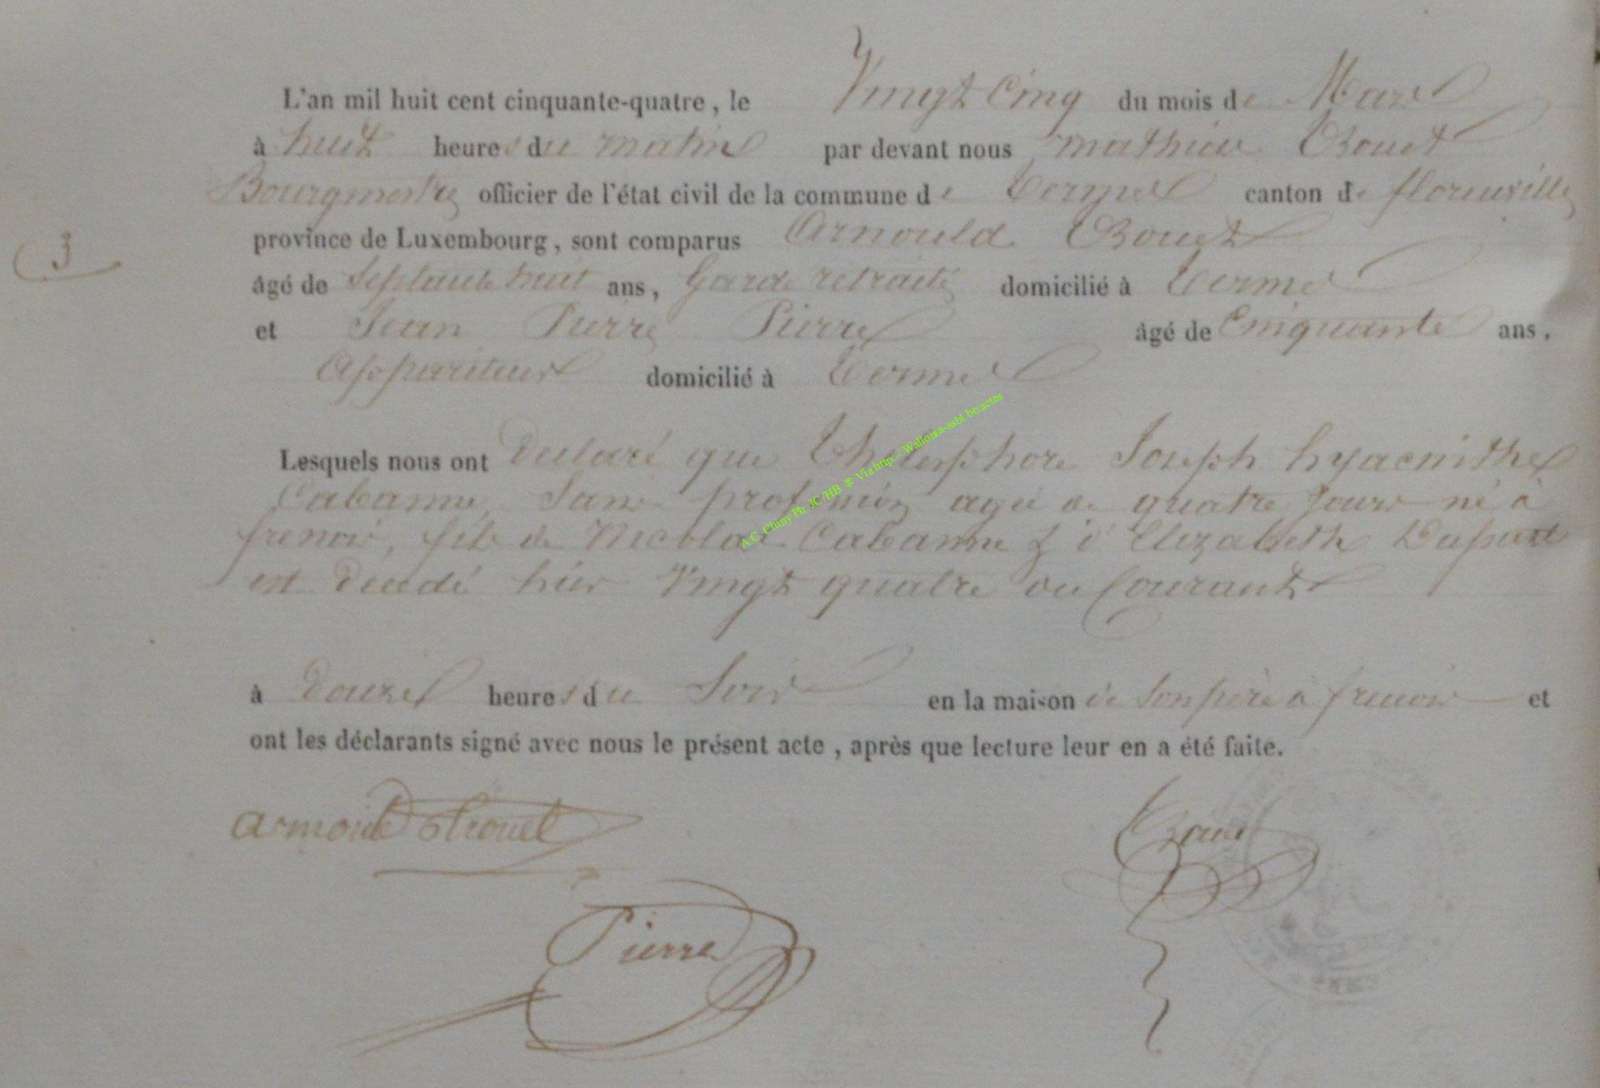 L'an mil huit cent cinquante-quatre, le Vingt Cinq du mois de Mars
à huit heures du matin par devant nous mathieu Bouet
Bourgmestre officier de l'état civil de la commune de Termes canton de florenville
province de Luxembourg, sont comparus Arnould Bouet
3
âgé de Septante huit ans, Garde retraité domicilié à Termes
et Jean Pierre Pierre âgé de Cinquante ans,
Appariteur domicilié à Termes
Lesquels nous ont Declaré que Thelesphore Joseph hyacinthe
Cabanne, Sans profession agé de quatre Jours né à
frenois, fils de Nicolas Cabanne & d'Elizabeth
est décédé hier Vingt quatre du Courant
à Douze heures du Soir en la maison de Son père à frenois et
ont les déclarants signé avec nous le présent acte, après que lecture leur en a été faite.
Arnould Bouet
Bouet
Pierre